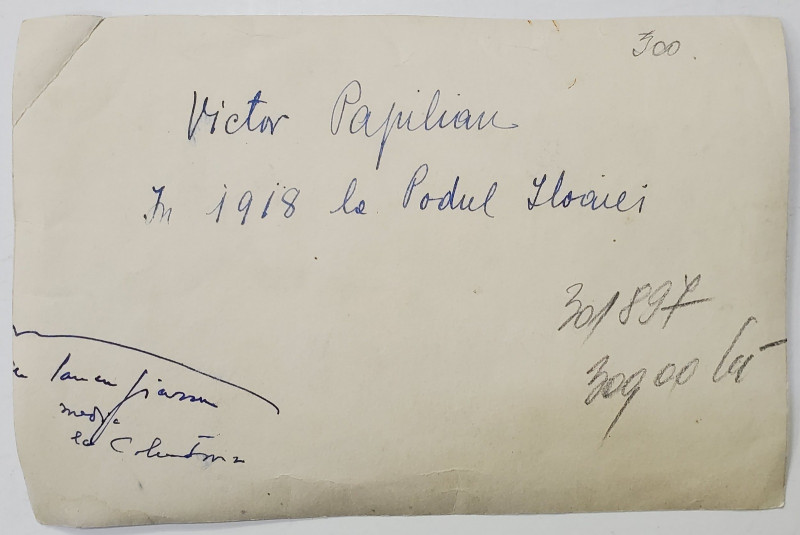 300.
Victor Papilian
In 1918 la Podul Iloaiei
301897
30900 lei
Iancu
medic
la Colentina